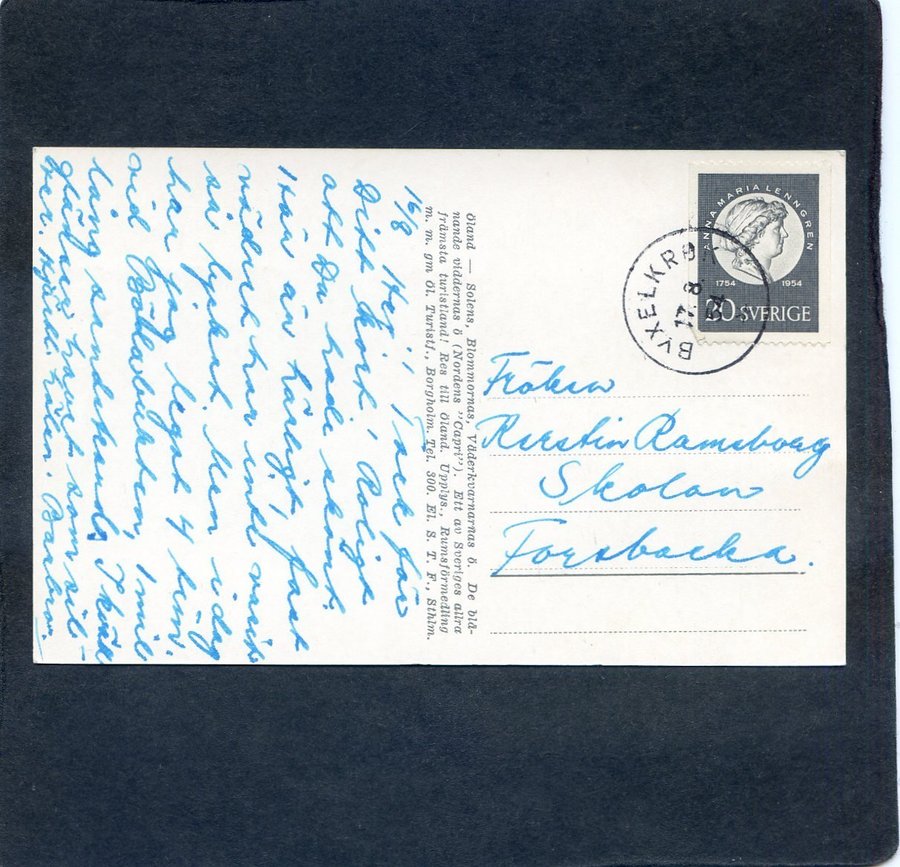 16/8 Hej! Tack för
Ditt kort! Roligt
att Du hade skönt.
Här är härligt, fast
vädret har inte varit
så lysket. Men i dag
har jag legat 4 tim.
vid Böhlabukten, 1 mil
lång sandstrand. Skön
glädjer havet som
ver. Hjärtl. häln. Barbro.
Öland — Solens, Blommornas, Väderkvarnarnas ö. De blå-
nande viddernas ö (Nordens "Capri"). Ett av Sveriges allra
främsta turistland! Res till Öland. Upplys., Rumsförmedling
m. m. gm Öl. Turistf., Borgholm. Tel. 300. El. S. T. F., Sthlm.
ANNA MARIA LENNGREN
1754 1954
30 SVERIGE
BYXELKROK
17. 8
54
Fröken
Kerstin Ramsborg
Skolan
Forsbacka.